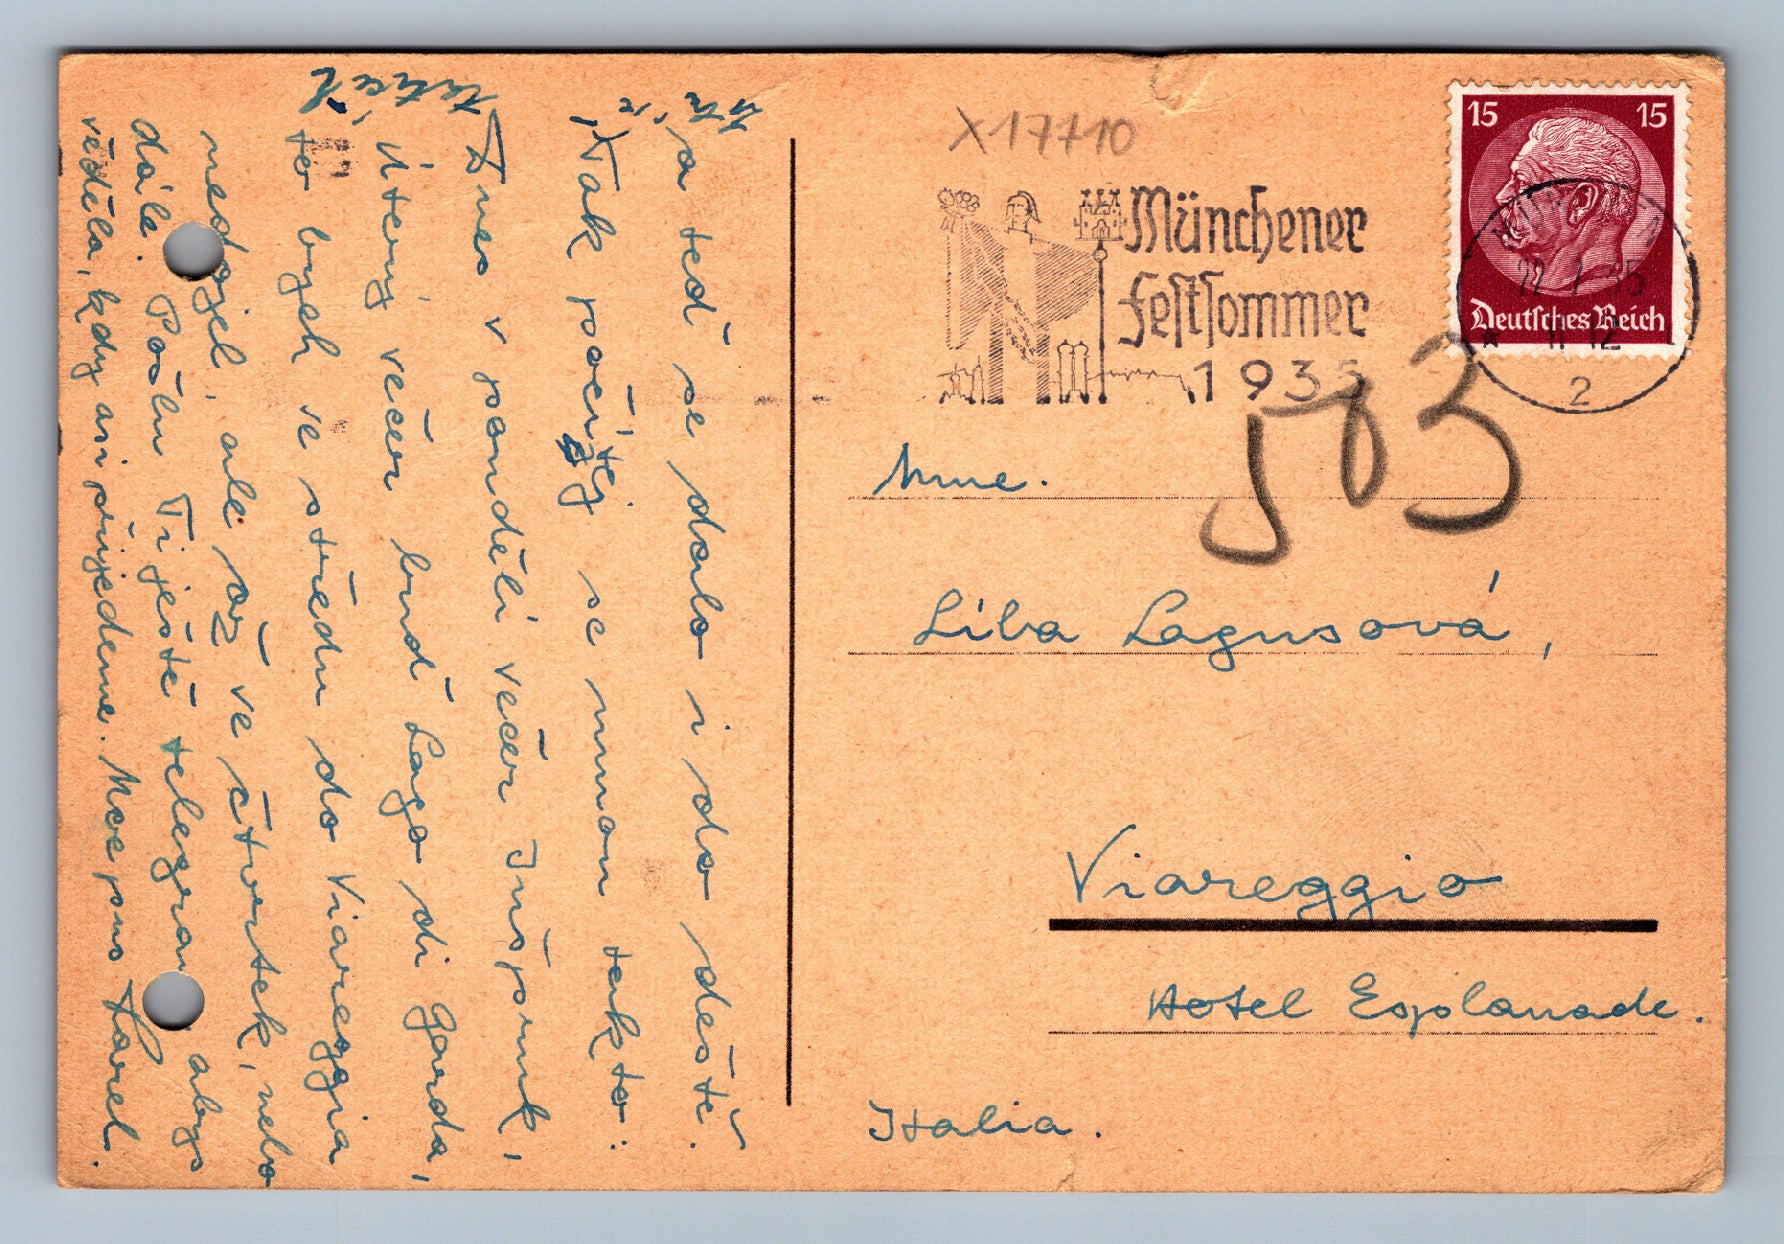 X17710
Münchener
Festsommer
1935
15 15
Deutsches Reich
MÜNCHEN
22.7.35
11-12
2
583
Mme.
Liba Lagusová,
Viareggio
Hotel Esplanade.
Italia.
a teď se dalo i do deště.
Tak počítej se mnou takto:
Dnes v pondělí večer Inšpruk,
úterý večer buď Lago di Garda,
to bych ve středu do Viareggia
nedojel, ale až ve čtvrtek, nebo
dále. Pošlu Ti ještě telegram abys
věděla, kdy asi přijedeme. Moc pus Karel.